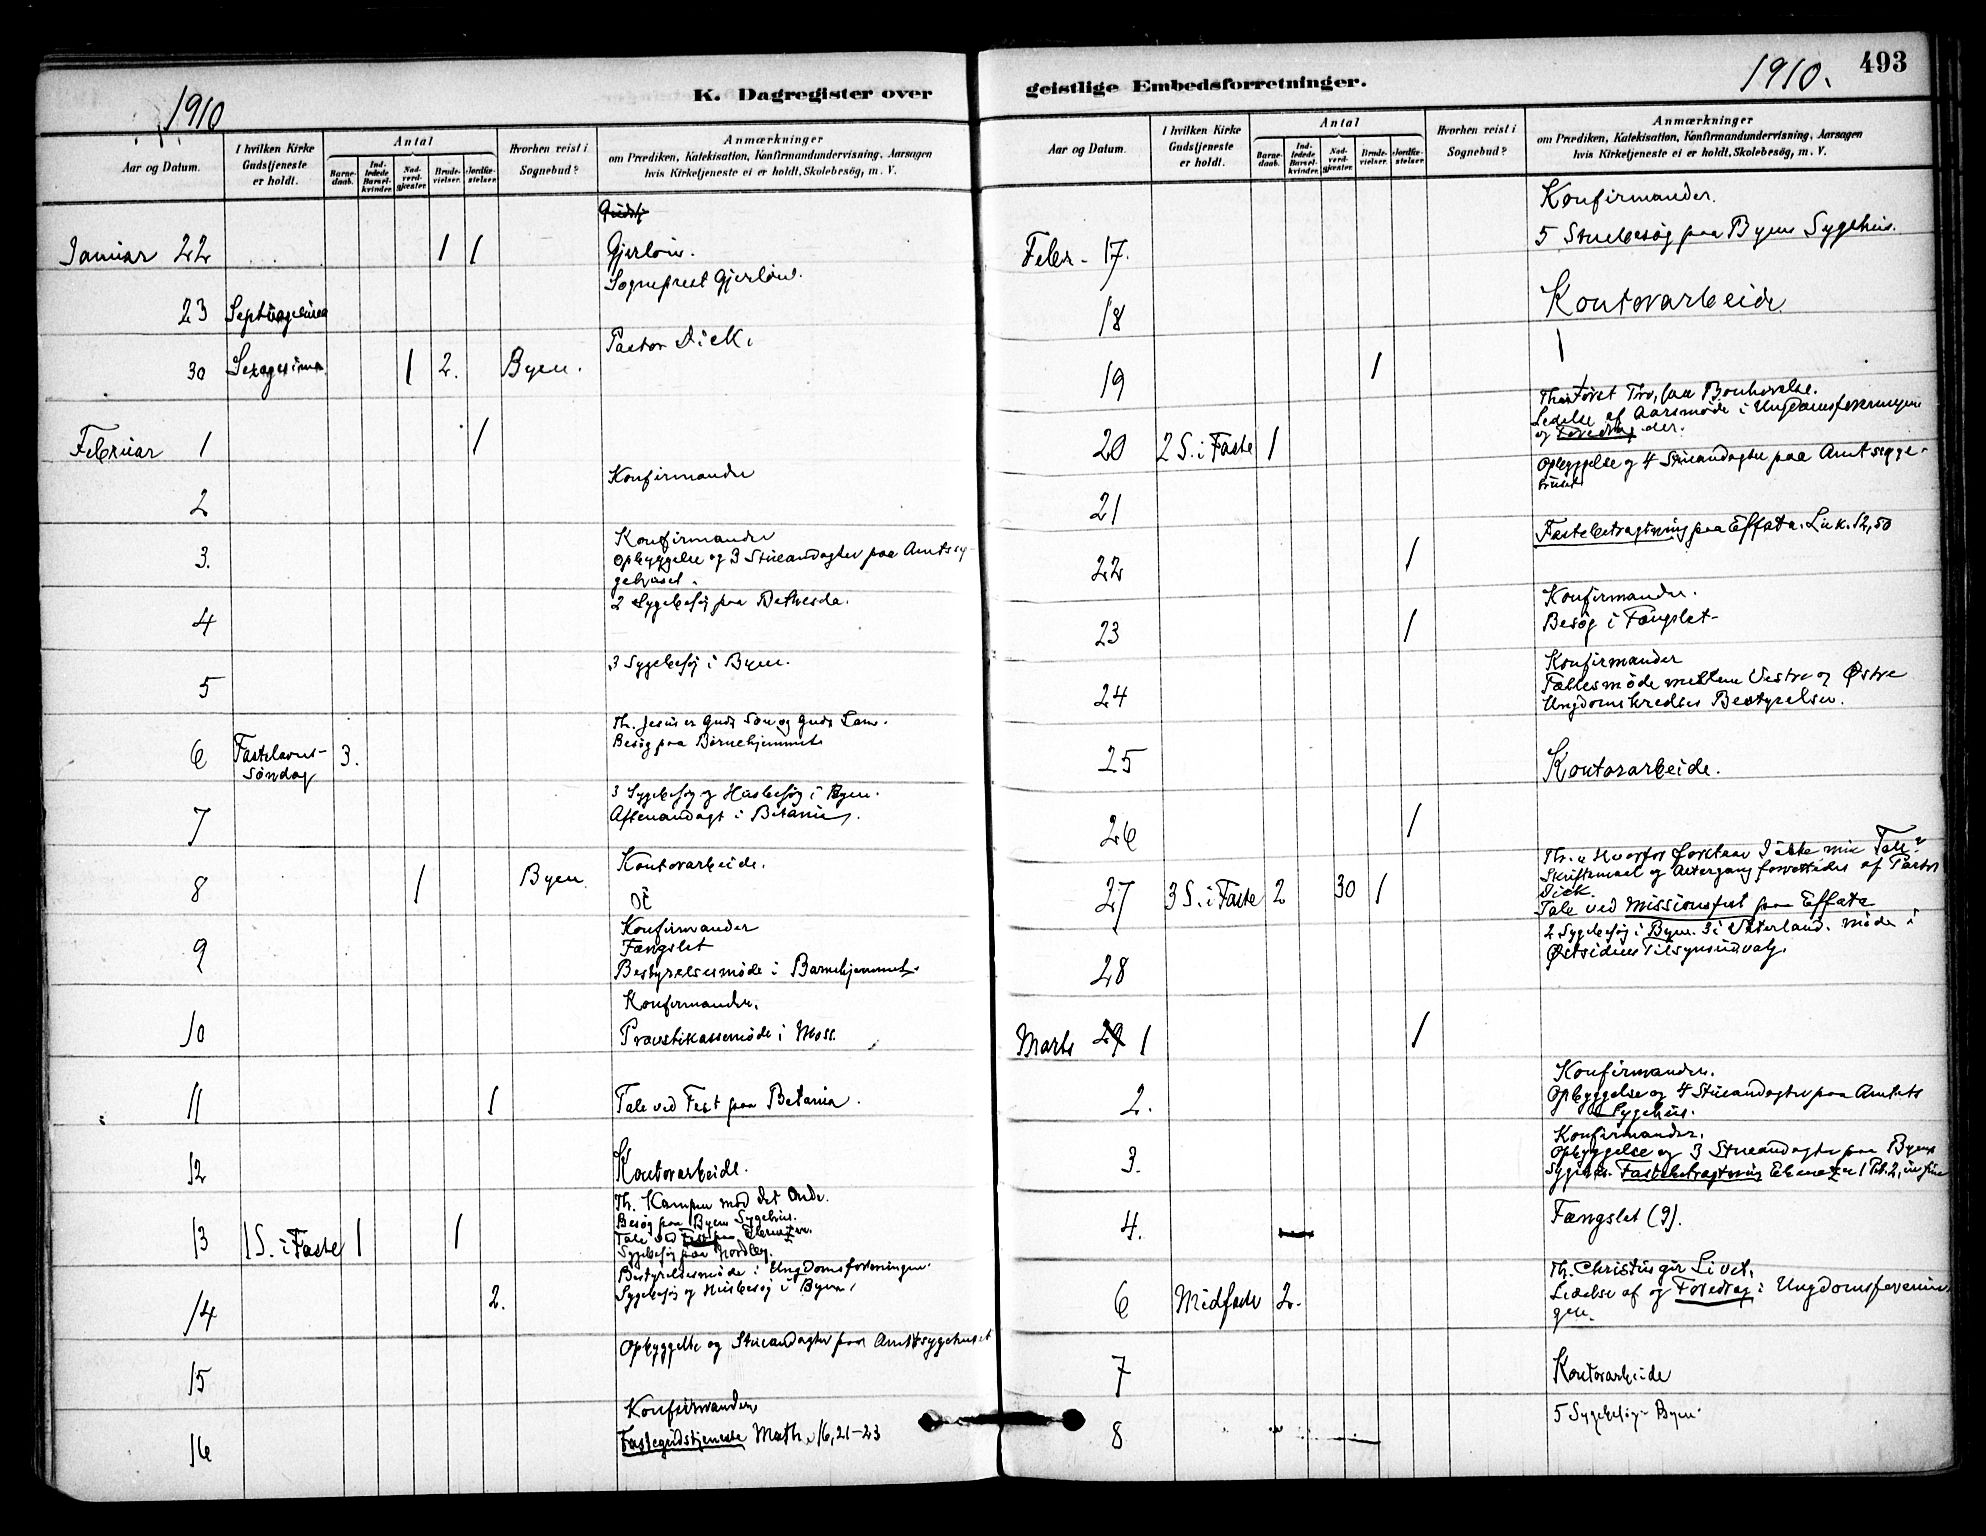 1910
K. Dagregister over
Aar og Datum.
I hvilken Kirke Gudstjeneste er holdt.
Antal
Barne-daab.
Ind-ledede Barsel-kvinder.
Nad-verd-gjæster.
Brude-vielser.
Jordfæ-stelser.
Hvorhen reist i Sognebud?
Anmærkninger
om Prædiken, Katekisation, Konfirmandundervisning, Aarsagen
hvis Kirketjeneste ei er holdt, Skolebesøg, m. V.
Januar 22 1 1 Gjerløw.
Sogneprest Gjerløw.
23 Septuagesima
Pastor Dick.
30 Sexagesima 1 2. Byen.
Februar 1 1
Konfirmander
2
Konfirmander
3. Opbyggelse og 3 Stueandagter paa Amtssy-
gehuset.
2 Sygebesøg paa Bethesda.
4
3 Sygebesøg i Byen.
5
Th. Jesus er Guds Søn og Guds Lam.
Besøg paa Børnehjemmet
6 Fastelavns- 3.
Søndag
3 Sygebesøg og Husbesøg i Byen.
7 Aftenandagt i Betania.
Kontorarbeide.
8 1 Byen
Konfirmander
9 Fængslet
Bestyrelsesmøde i Barnehjemmet.
Konfirmander.
10 Provstikassemøde i Moss.
11 1 Tale ved Fest paa Betania.
12 Kontorarbeide.
Th. Kampen mod det Onde.
Besøg paa Byens Sygehus.
13 1 S. i Faste 1 1 Tale ved Fest paa Ebenezer.
Sygebesøg paa Nordby.
Bestyrelsesmøde i Ungdomsforeningen.
14 2. Sygebesøg og Husbesøg i Byen.
Opbyggelse og Stueandagter paa Amtssygehuset
15
Konfirmander
16 Fastegudstjeneste Math. 16,21-23
geistlige Embedsforretninger.
1910.
493
Aar og Datum.
I hvilken Kirke Gudstjeneste er holdt.
Antal
Barne-daab.
Ind-ledede Barsel-kvinder.
Nad-verd-gjæster.
Brude-vielser.
Jordfæ-stelser.
Hvorhen reist i Sognebud?
Anmærkninger
om Prædiken, Katekisation, Konfirmandundervisning, Aarsagen
hvis Kirketjeneste ei er holdt, Skolebesøg, m. V.
Konfirmander.
Febr. 17. 5 Stuebesøg paa Byens Sygehus.
18 Kontorarbeide
19 1
Tro, Bønhørelse.
Ledelse af Aarsmøde i Ungdomsforeningen
20 2 S. i Faste 1 og Foredrag der.
Opbyggelse og 4 Stueandagter paa Amtssyge-
huset
21
Fastebetragtning paa Effata. Luk. 12,50
22 1
Konfirmander.
23 1 Besøg i Fængslet-
Konfirmander
24 Fællesmøde mellem Vestre og Østre
Ungdomskredses Bestyrelser.
25 Kontorarbeide.
26 1
Th. Hvorfor forstaar I ikke min Tale?
Skriftemaal og Altergang forrettedes af Pastor
27 3 S. i Faste 2 30 1 Dick.
Tale ved Missionsfest paa Effata
2 Sygebesøg i Byen. 3 i Vaterland. Møde i
28 Østsidens Tilsynsudvalg.
Marts 1 1
Konfirmander.
2. Opbyggelse og 4 Stueandagter paa Amtets
Sygehus.
Konfirmander.
3. Opbyggelse og 3 Stueandagter paa Byens
Sygehus. Fastebetragtning Ebenezer 1 Pet. 2,
4. Fængslet (9).
Th. Christus gir Livet.
6 Midfaste 2. Ledelse af og Foredrag i Ungdomsforenin-
gen.
7 Kontorarbeide
8 5 Sygebesøg Byen